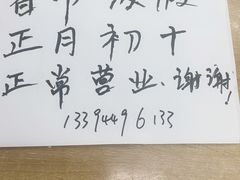 春节放假
正月初十
正常营业、谢谢！
13394496133